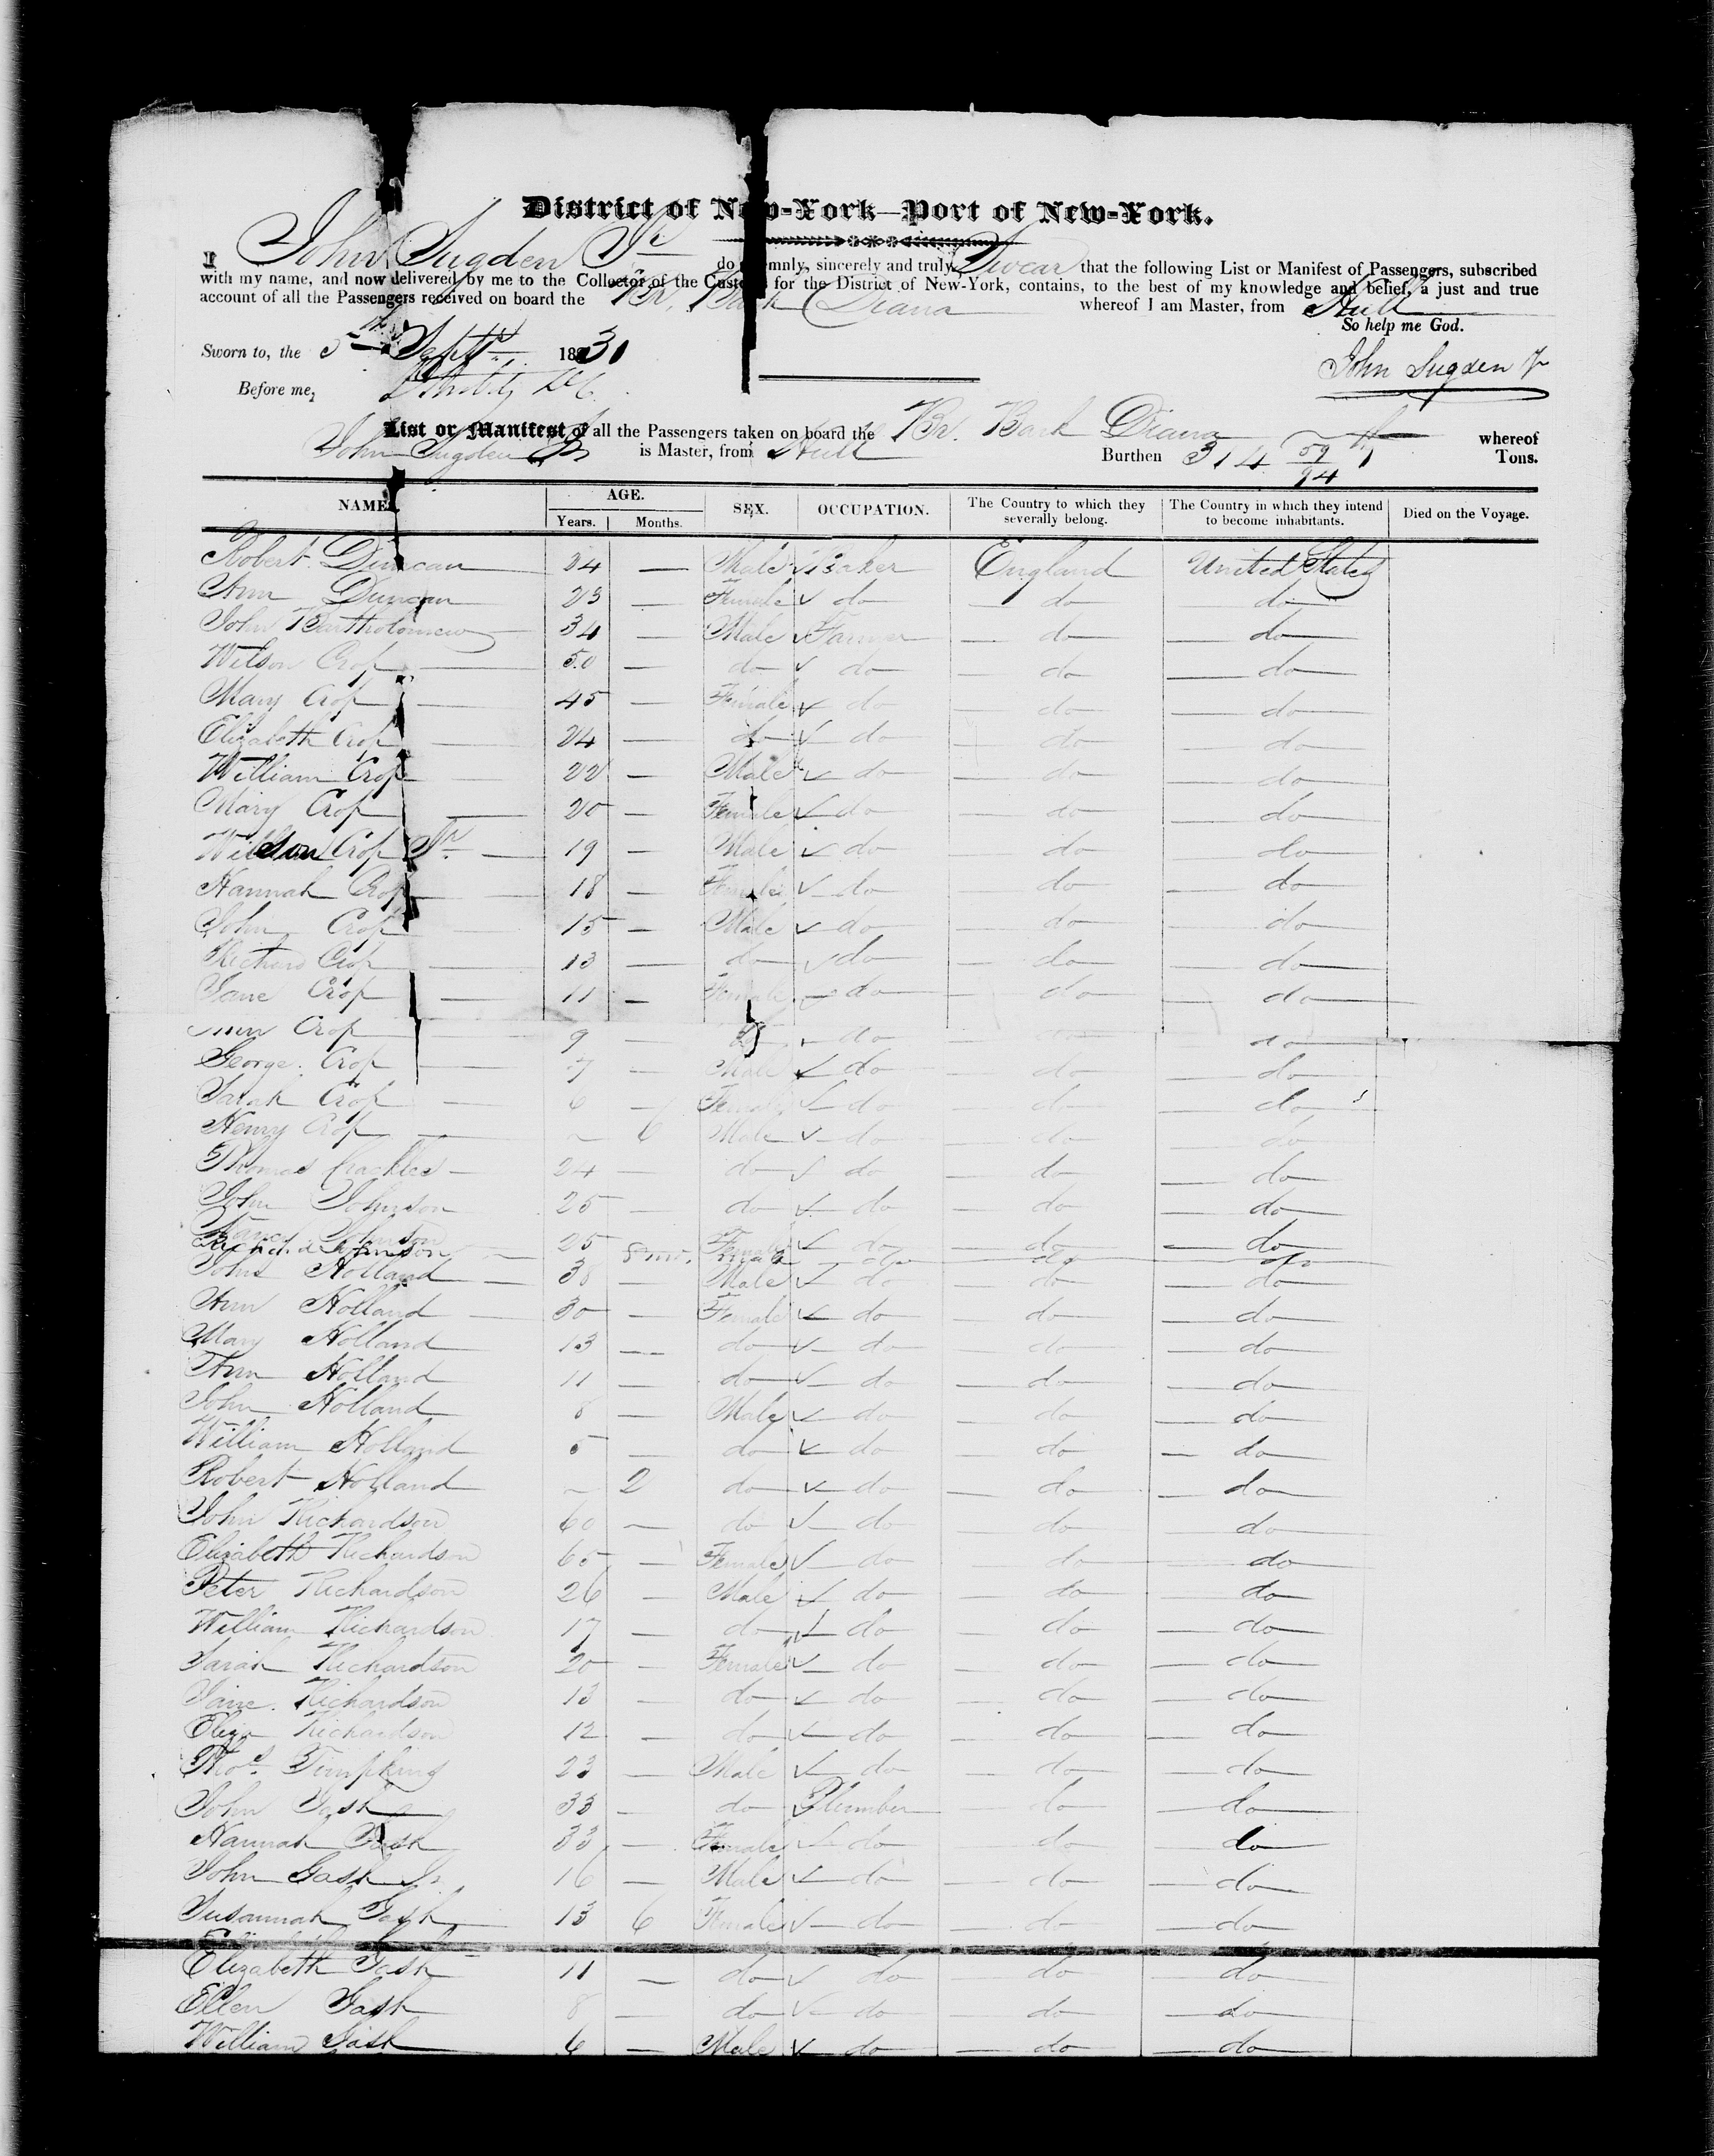 District of New-York—Port of New-York.
I John Sugden Jr do solemnly, sincerely and truly, Swear that the following List or Manifest of Passengers, subscribed
with my name, and now delivered by me to the Collector of the Customs for the District of New-York, contains, to the best of my knowledge and belief, a just and true
account of all the Passengers received on board the Br. Bark Diana whereof I am Master, from Hull
So help me God.
Sworn to, the 5th Septr 1831
John Sugden Jr
Before me,
List or Manifest of all the Passengers taken on board the Br. Bark Diana whereof
John Sugden Jr is Master, from Hull Burthen 314 59/94 Tons.
NAMES. AGE. SEX. OCCUPATION. The Country to which they severally belong. The Country in which they intend to become inhabitants. Died on the Voyage.
Years. Months.
Robert Duncan 24 — Male Baker England United States
Ann Duncan 23 — Female do do do
John Bartholomew 34 — Male Farmer do do
Wilson Crop 50 — do do do do
Mary Crop 45 — Female do do do
Elizabeth Crop 24 — do do do do
William Crop 22 — Male do do do
Mary Crop 20 — Female do do do
Wilson Crop Jr 19 — Male do do do
Hannah Crop 18 — Female do do do
John Crop 15 — Male do do do
Richard Crop 13 — do do do do
Jane Crop 11 — Female do do do
Ann Crop 9 — do do do
George Crop 7 — Male do do do
Sarah Crop 6 — Female do do do
Henry Crop — 6 Male do do do
Thomas Crackles 24 — do do do do
John Johnson 25 — do do do do
Nancy Johnson 25 — Female do do do
Richard Johnson 8 mo. male do do do
John Holland 38 — Male do do do
Ann Holland 30 — Female do do do
Mary Holland 13 — do do do do
Ann Holland 11 — do do do do
John Holland 8 — Male do do do
William Holland 5 — do do do do
Robert Holland — 2 do do do do
John Richardson 60 — do do do do
Elizabeth Richardson 65 — Female do do do
Peter Richardson 26 — Male do do do
William Richardson 17 — do do do do
Sarah Richardson 20 — Female do do do
Jane Richardson 13 — do do do do
Eliza Richardson 12 — do do do do
Thos. Timpking 23 — Male do do do
John Gash 33 — do Plumber do do
Hannah Gash 33 — Female do do do
John Gash Jr. 16 — Male do do do
Susannah Gash 13 6 Female do do do
Elizabeth Gash 11 — do do do do
Ellen Gash 8 — do do do do
William Gash 6 — Male do do do